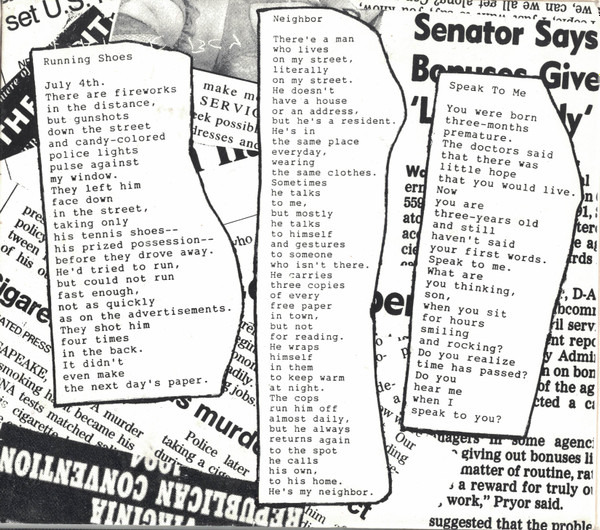 Running Shoes
July 4th.
There are fireworks
in the distance,
but gunshots
down the street
and candy-colored
police lights
pulse against
my window.
They left him
face down
in the street,
taking only
his tennis shoes--
his prized possession--
before they drove away.
He'd tried to run,
but could not run
fast enough,
not as quickly
as on the advertisements.
They shot him
four times
in the back.
It didn't
even make
the next day's paper.
Neighbor
There'e a man
who lives
on my street,
literally
on my street.
He doesn't
have a house
or an address,
but he's a resident.
He's in
the same place
everyday,
wearing
the same clothes.
Sometimes
he talks
to me,
but mostly
he talks
to himself
and gestures
to someone
who isn't there.
He carries
three copies
of every
free paper
in town,
but not
for reading.
He wraps
himself
in them
to keep warm
at night.
The cops
run him off
almost daily,
but he always
returns again
to the spot
he calls
his own,
to his home.
He's my neighbor.
Speak To Me
You were born
three-months
premature.
The doctors said
that there was
little hope
that you would live.
Now
you are
three-years old
and still
haven't said
your first words.
Speak to me.
What are
you thinking,
son,
when you sit
for hours
smiling
and rocking?
Do you realize
time has passed?
Do you
hear me
when I
speak to you?
set U.S.
Senator Says
Bonuses Give
make m
SERVIC
eek possib
dresses and
murder
A murder
became his
Police later
taking a
smoking
NA tests matched
VIRGINIA
REPUBLICAN CONVENTION
1994
in some agenc
giving out bonuses li
matter of routine, ra
a reward for truly o
work," Pryor said.
suggested that the proble